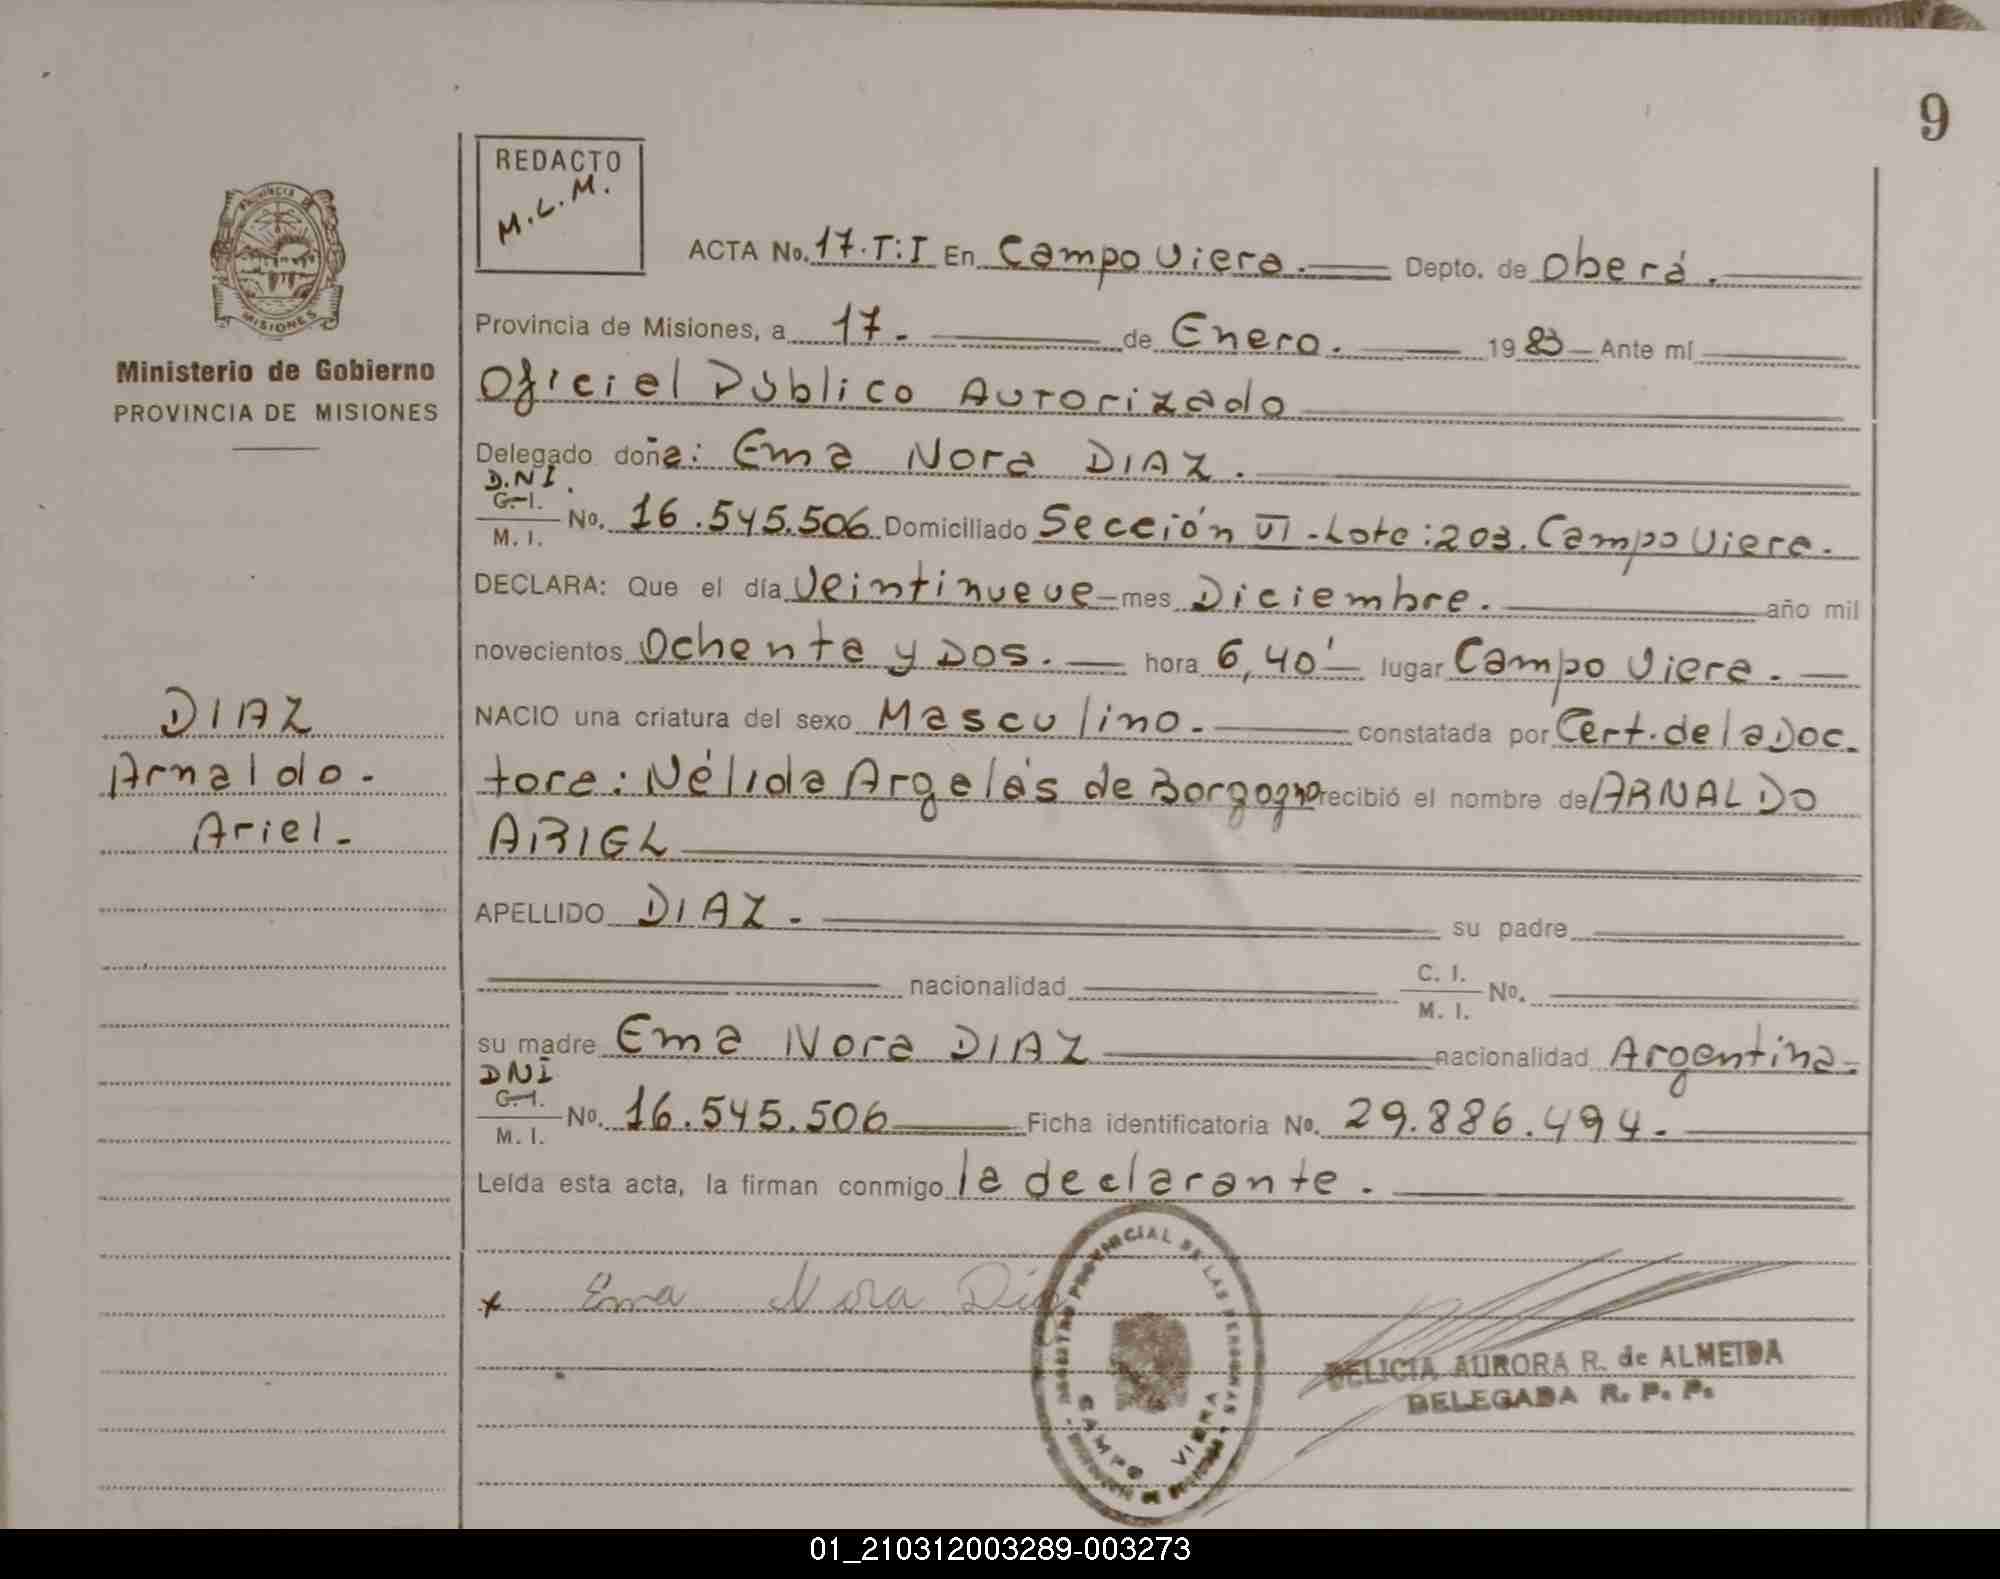 9
REDACTO
M.L.M.
PROVINCIA DE
MISIONES
Ministerio de Gobierno
PROVINCIA DE MISIONES
ACTA No. 17.T:I En Campo Viera. Depto. de Oberá.
Provincia de Misiones, a 17. de Enero. 1983 Ante mí
Oficial Público Autorizado
Delegado doña: Ema Nora DIAZ.
D.N.I.
C.I.
M. I. No. 16.545.506 Domiciliado Sección VI - Lote: 203. Campo Viera.
DECLARA: Que el día Veintinueve mes Diciembre. año mil
novecientos Ochenta y Dos. hora 6,40' lugar Campo Viera.
NACIO una criatura del sexo Masculino. constatada por Cert. de la Doc-
tora: Nélida Argelás de Borgogno recibió el nombre de ARNALDO
ARIEL
DIAZ
Arnaldo.
Ariel.
APELLIDO DIAZ. su padre
nacionalidad C. I.
M. I. No.
su madre Ema Nora DIAZ nacionalidad Argentina
DNI
C.I.
M. I. No. 16.545.506 Ficha identificatoria No. 29.886.494.
Leída esta acta, la firman conmigo la declarante.
x Ema Nora Diaz
PROVINCIAL DE LAS PERSONAS
CAMPO VIERA
DELICIA AURORA R. de ALMEIDA
DELEGADA R. P. P.
01_210312003289-003273